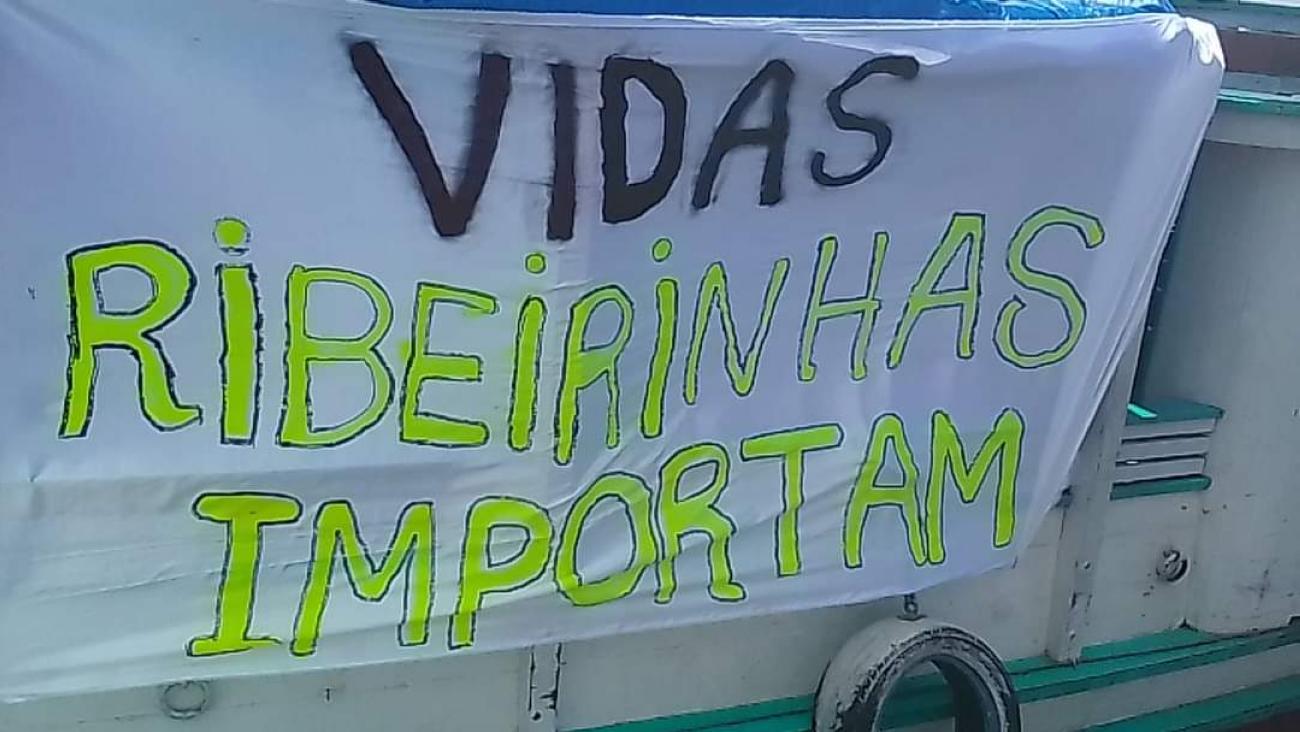 VIDAS
RIBEIRINHAS
IMPORTAM